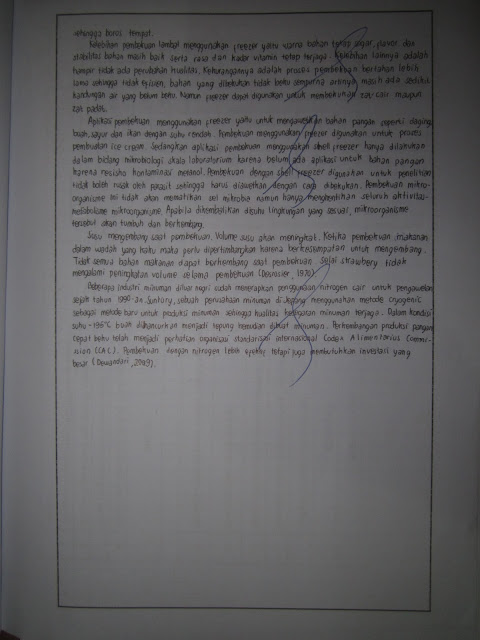 sehingga boros tempat.
Kelebihan pembekuan lambat menggunakan freezer yaitu warna bahan tetap segar, flavor dan
stabilitas bahan masih baik serta rasa dan kadar vitamin tetap terjaga. Kelebihan lainnya adalah
hampir tidak ada perubahan kualitas. Kekurangannya adalah proses pembekuan bertahan lebih
lama sehingga tidak efisien, bahan yang dibekukan tidak beku sempurna artinya masih ada sedikit
kandungan air yang belum beku. Namun freezer dapat digunakan untuk membekukan zat cair maupun
zat padat.
Aplikasi pembekuan menggunakan freezer yaitu untuk mengawetkan bahan pangan seperti daging,
buah, sayur dan ikan dengan suhu rendah. Pembekuan menggunakan freezer digunakan untuk proses
pembuatan ice cream. Sedangkan aplikasi pembekuan menggunakan shell freezer hanya dilakukan
dalam bidang mikrobiologi skala laboratorium karena belum ada aplikasi untuk bahan pangan
karena resisko kontaminasi metanol. Pembekuan dengan shell freezer digunakan untuk penelitian
tidak boleh rusak oleh parasit sehingga harus diawetkan dengan cara dibekukan. Pembekuan mikro-
organisme ini tidak akan mematikan sel mikroba namun hanya menghentikan seluruh aktivitas
metabolisme mikroorganisme. Apabila dikembalikan disuhu lingkungan yang sesuai, mikroorganisme
tersebut akan tumbuh dan berkembang.
Susu mengembang saat pembekuan. Volume susu akan meningkat. Ketika pembekuan, makanan
dalam wadah yang kaku maka perlu dipertimbangkan karena berkesempatan untuk mengembang.
Tidak semua bahan makanan dapat berkembang saat pembekuan. Selai strawbery tidak
mengalami peningkatan volume selama pembekuan (Desrosier, 1970).
Beberapa industri minuman diluar negri sudah menerapkan penggunaan nitrogen cair untuk pengawetan
sejak tahun 1990-an. Suntory, sebuah perusahaan minuman di Jepang menggunakan metode cryogenic
sebagai metode baru untuk produksi minuman sehingga kualitas kesegaran minuman terjaga. Dalam kondisi
suhu -196°C buah dihancurkan menjadi tepung kemudian dibuat minuman. Perkembangan produksi pangan
cepat beku telah menjadi perhatian organisasi standarisasi internasional Codex Alimentarius Commi-
sion (CAC). Pembekuan dengan nitrogen lebih efektif tetapi juga membutuhkan investasi yang
besar (Dewandari, 2009).